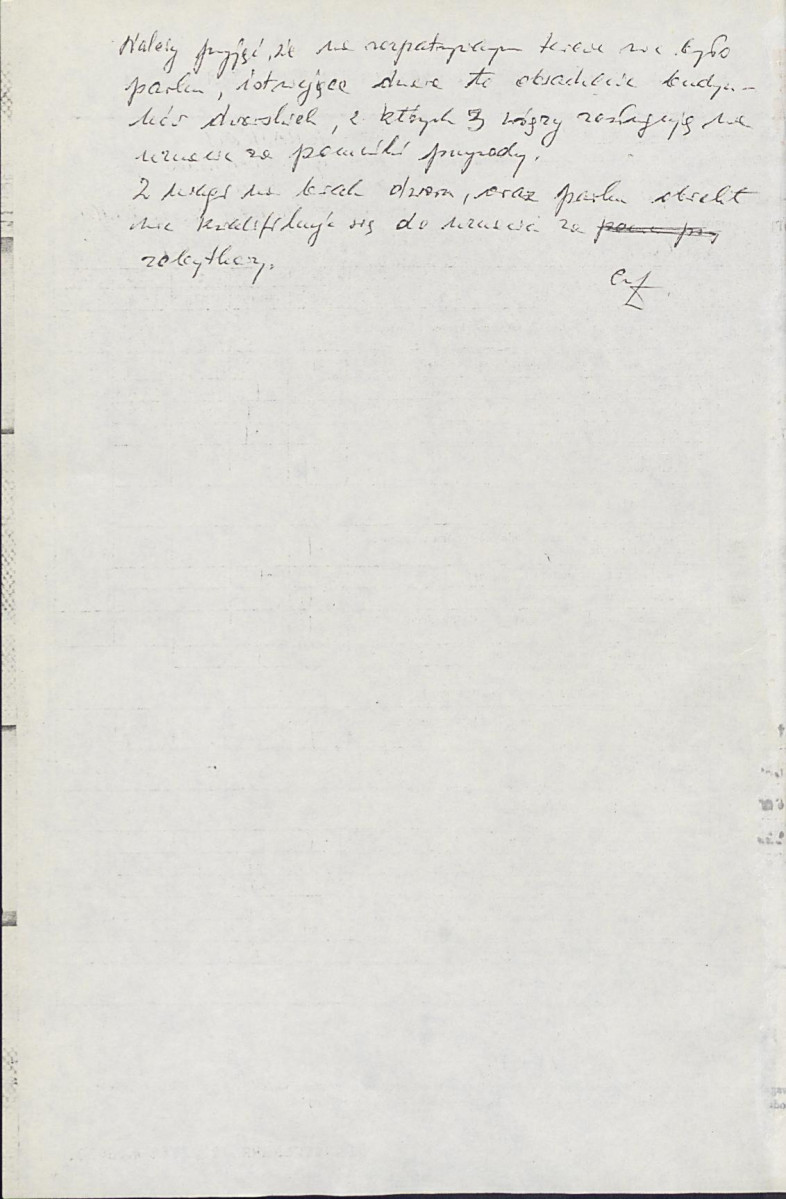 Należy przyjąć, że na rozpatrywanym terenie nie było
parku, istniejące drzewa to obsadzenie budyn-
ków dworskich, z których 3 wiązy zasługują na
uznanie za pomniki przyrody.
Z uwagi na brak dworu, oraz parku obiekt
nie kwalifikuje się do uznania za pom prz
zabytkowy.